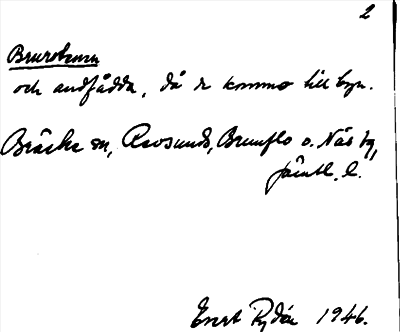 2
och andfådda, då de kommo till byn.
Bräcke sn, Revsunds, Brunflo o. Näs tg,
Jämtl. l.
Evert Rydén 1946.